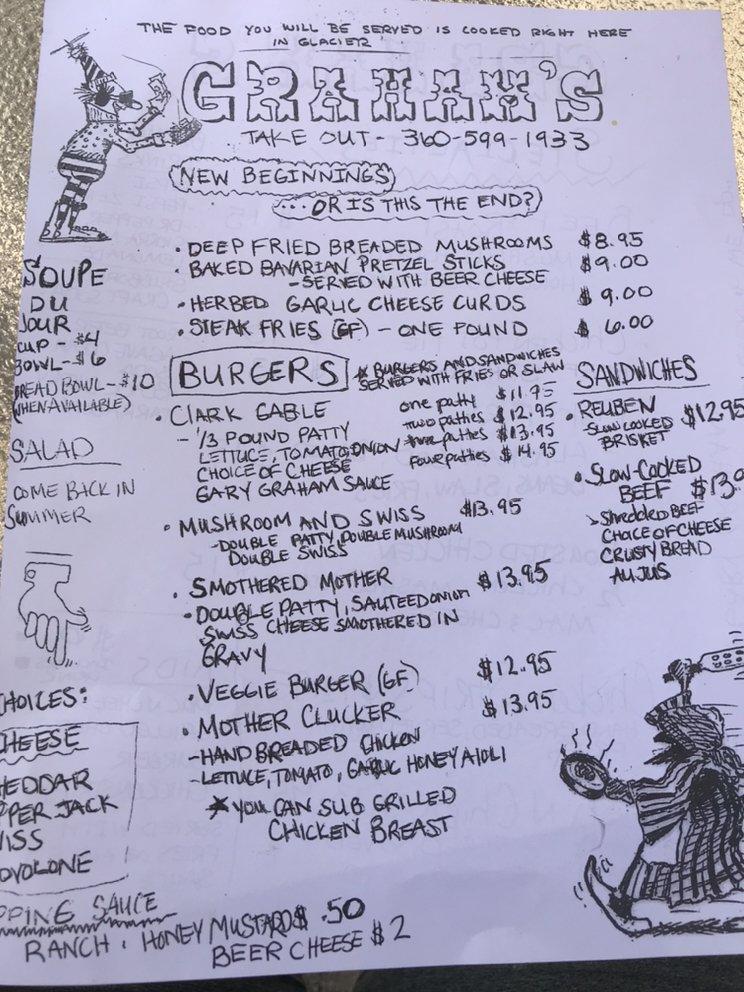 THE FOOD YOU WILL BE SERVED IS COOKED RIGHT HERE
IN GLACIER
GRAHAM'S
TAKE OUT - 360-599-1933
NEW BEGINNINGS
...OR IS THIS THE END?
• DEEP FRIED BREADED MUSHROOMS $8.95
• BAKED BAVARIAN PRETZEL STICKS $9.00
- SERVED WITH BEER CHEESE
• HERBED GARLIC CHEESE CURDS $9.00
• STEAK FRIES (GF) - ONE POUND $6.00
SOUPE
DU
JOUR
CUP - $4
BOWL - $6
BREAD BOWL - $10
(WHEN AVAILABLE)
SALAD
COME BACK IN
SUMMER
BURGERS
* BURGERS AND SANDWICHES
SERVED WITH FRIES OR SLAW
• CLARK GABLE
one patty $11.95
two patties $12.95
three patties $13.95
four patties $14.95
- 1/3 POUND PATTY
LETTUCE, TOMATO, ONION
CHOICE OF CHEESE
GARY GRAHAM SAUCE
• MUSHROOM AND SWISS $13.95
- DOUBLE PATTY, DOUBLE MUSHROOM
DOUBLE SWISS
• SMOTHERED MOTHER $13.95
- DOUBLE PATTY, SAUTEED ONION
SWISS CHEESE SMOTHERED IN
GRAVY
• VEGGIE BURGER (GF) $12.95
• MOTHER CLUCKER $13.95
- HAND BREADED CHICKEN
- LETTUCE, TOMATO, GARLIC HONEY AIOLI
* YOU CAN SUB GRILLED
CHICKEN BREAST
SANDWICHES
• REUBEN $12.95
SLOW COOKED
BRISKET
• SLOW-COOKED
BEEF $13
> Shredded BEEF
CHOICE OF CHEESE
CRUSTY BREAD
AU JUS
CHOICES:
CHEESE
CHEDDAR
PPER JACK
WISS
OVOLONE
PPING SAUCE
RANCH • HONEY MUSTARD $ .50
BEER CHEESE $2